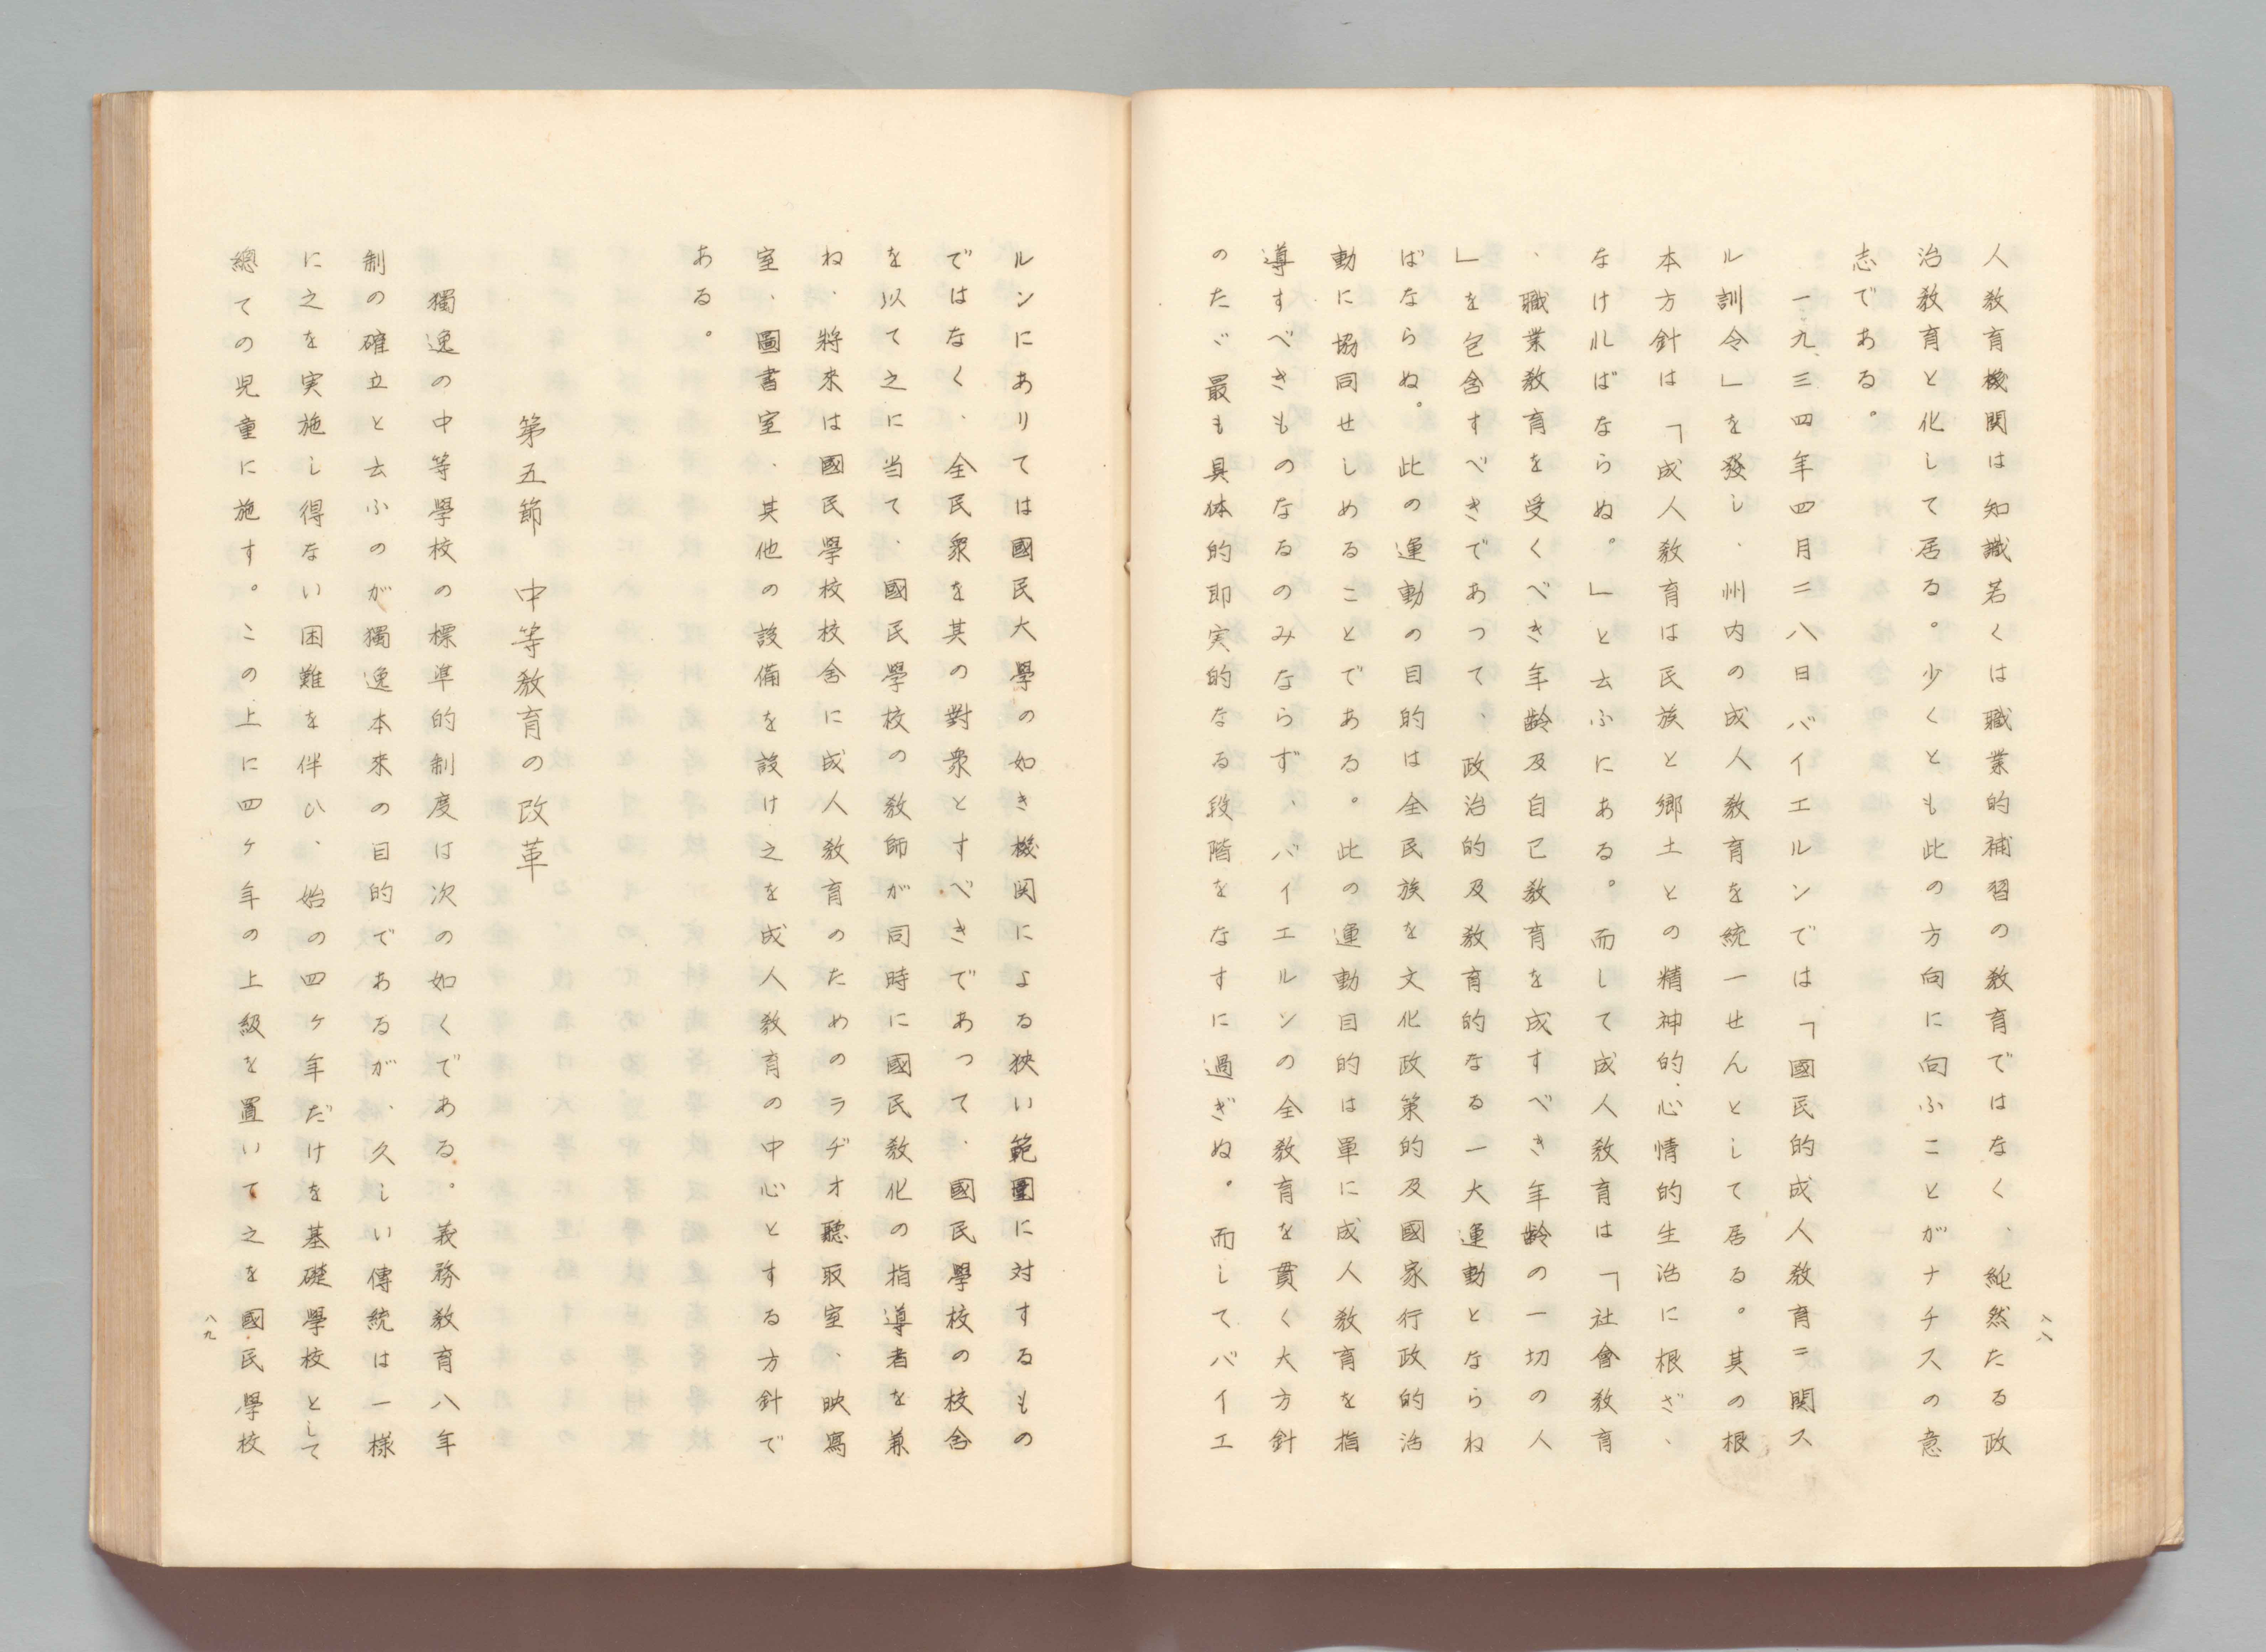 人教育機関は知識若くは職業的補習の教育ではなく、純然たる政
治教育と化して居る。少くとも此の方向に向ふことがナチスの意
志である。
一九三四年四月二八日バイエルンでは「國民的成人教育ニ関ス
ル訓令」を發し、州内の成人教育を統一せんとして居る。其の根
本方針は「成人教育は民族と郷土との精神的、心情的生活に根ざゝ
なければならぬ。」と云ふにある。而して成人教育は「社會教育
、職業教育を受くべき年齢及自己教育を成すべき年齢の一切の人
」を包含すべきであつて、政治的及教育的なる一大運動とならね
ばならぬ。此の運動の目的は全民族を文化政策的及國家行政的活
動に協同せしめることである。此の運動目的は單に成人教育を指
導すべきものなるのみならず、バイエルンの全教育を貫く大方針
のたゞ最も具体的即実的なる段階をなすに過ぎぬ。而してバイエ
八八
ルンにありては國民大學の如き機関による狹い範圍に対するもの
ではなく、全民衆を其の對衆とすべきであつて、國民學校の校舎
を以て之に当て、國民學校の教師が同時に國民教化の指導者を兼
ね、將来は國民學校校舎に成人教育のためのラヂオ聽取室、映寫
室、圖書室、其他の設備を設け之を成人教育の中心とする方針で
ある。
第五節　中等教育の改革
獨逸の中等學校の標準的制度は次の如くである。義務教育八年
制の確立と云ふのが獨逸本来の目的であるが、久しい傳統は一様
に之を実施し得ない困難を伴ひ、始の四ヶ年だけを基礎學校として
總ての児童に施す。この上に四ヶ年の上級を置いて之を國民學校
八九